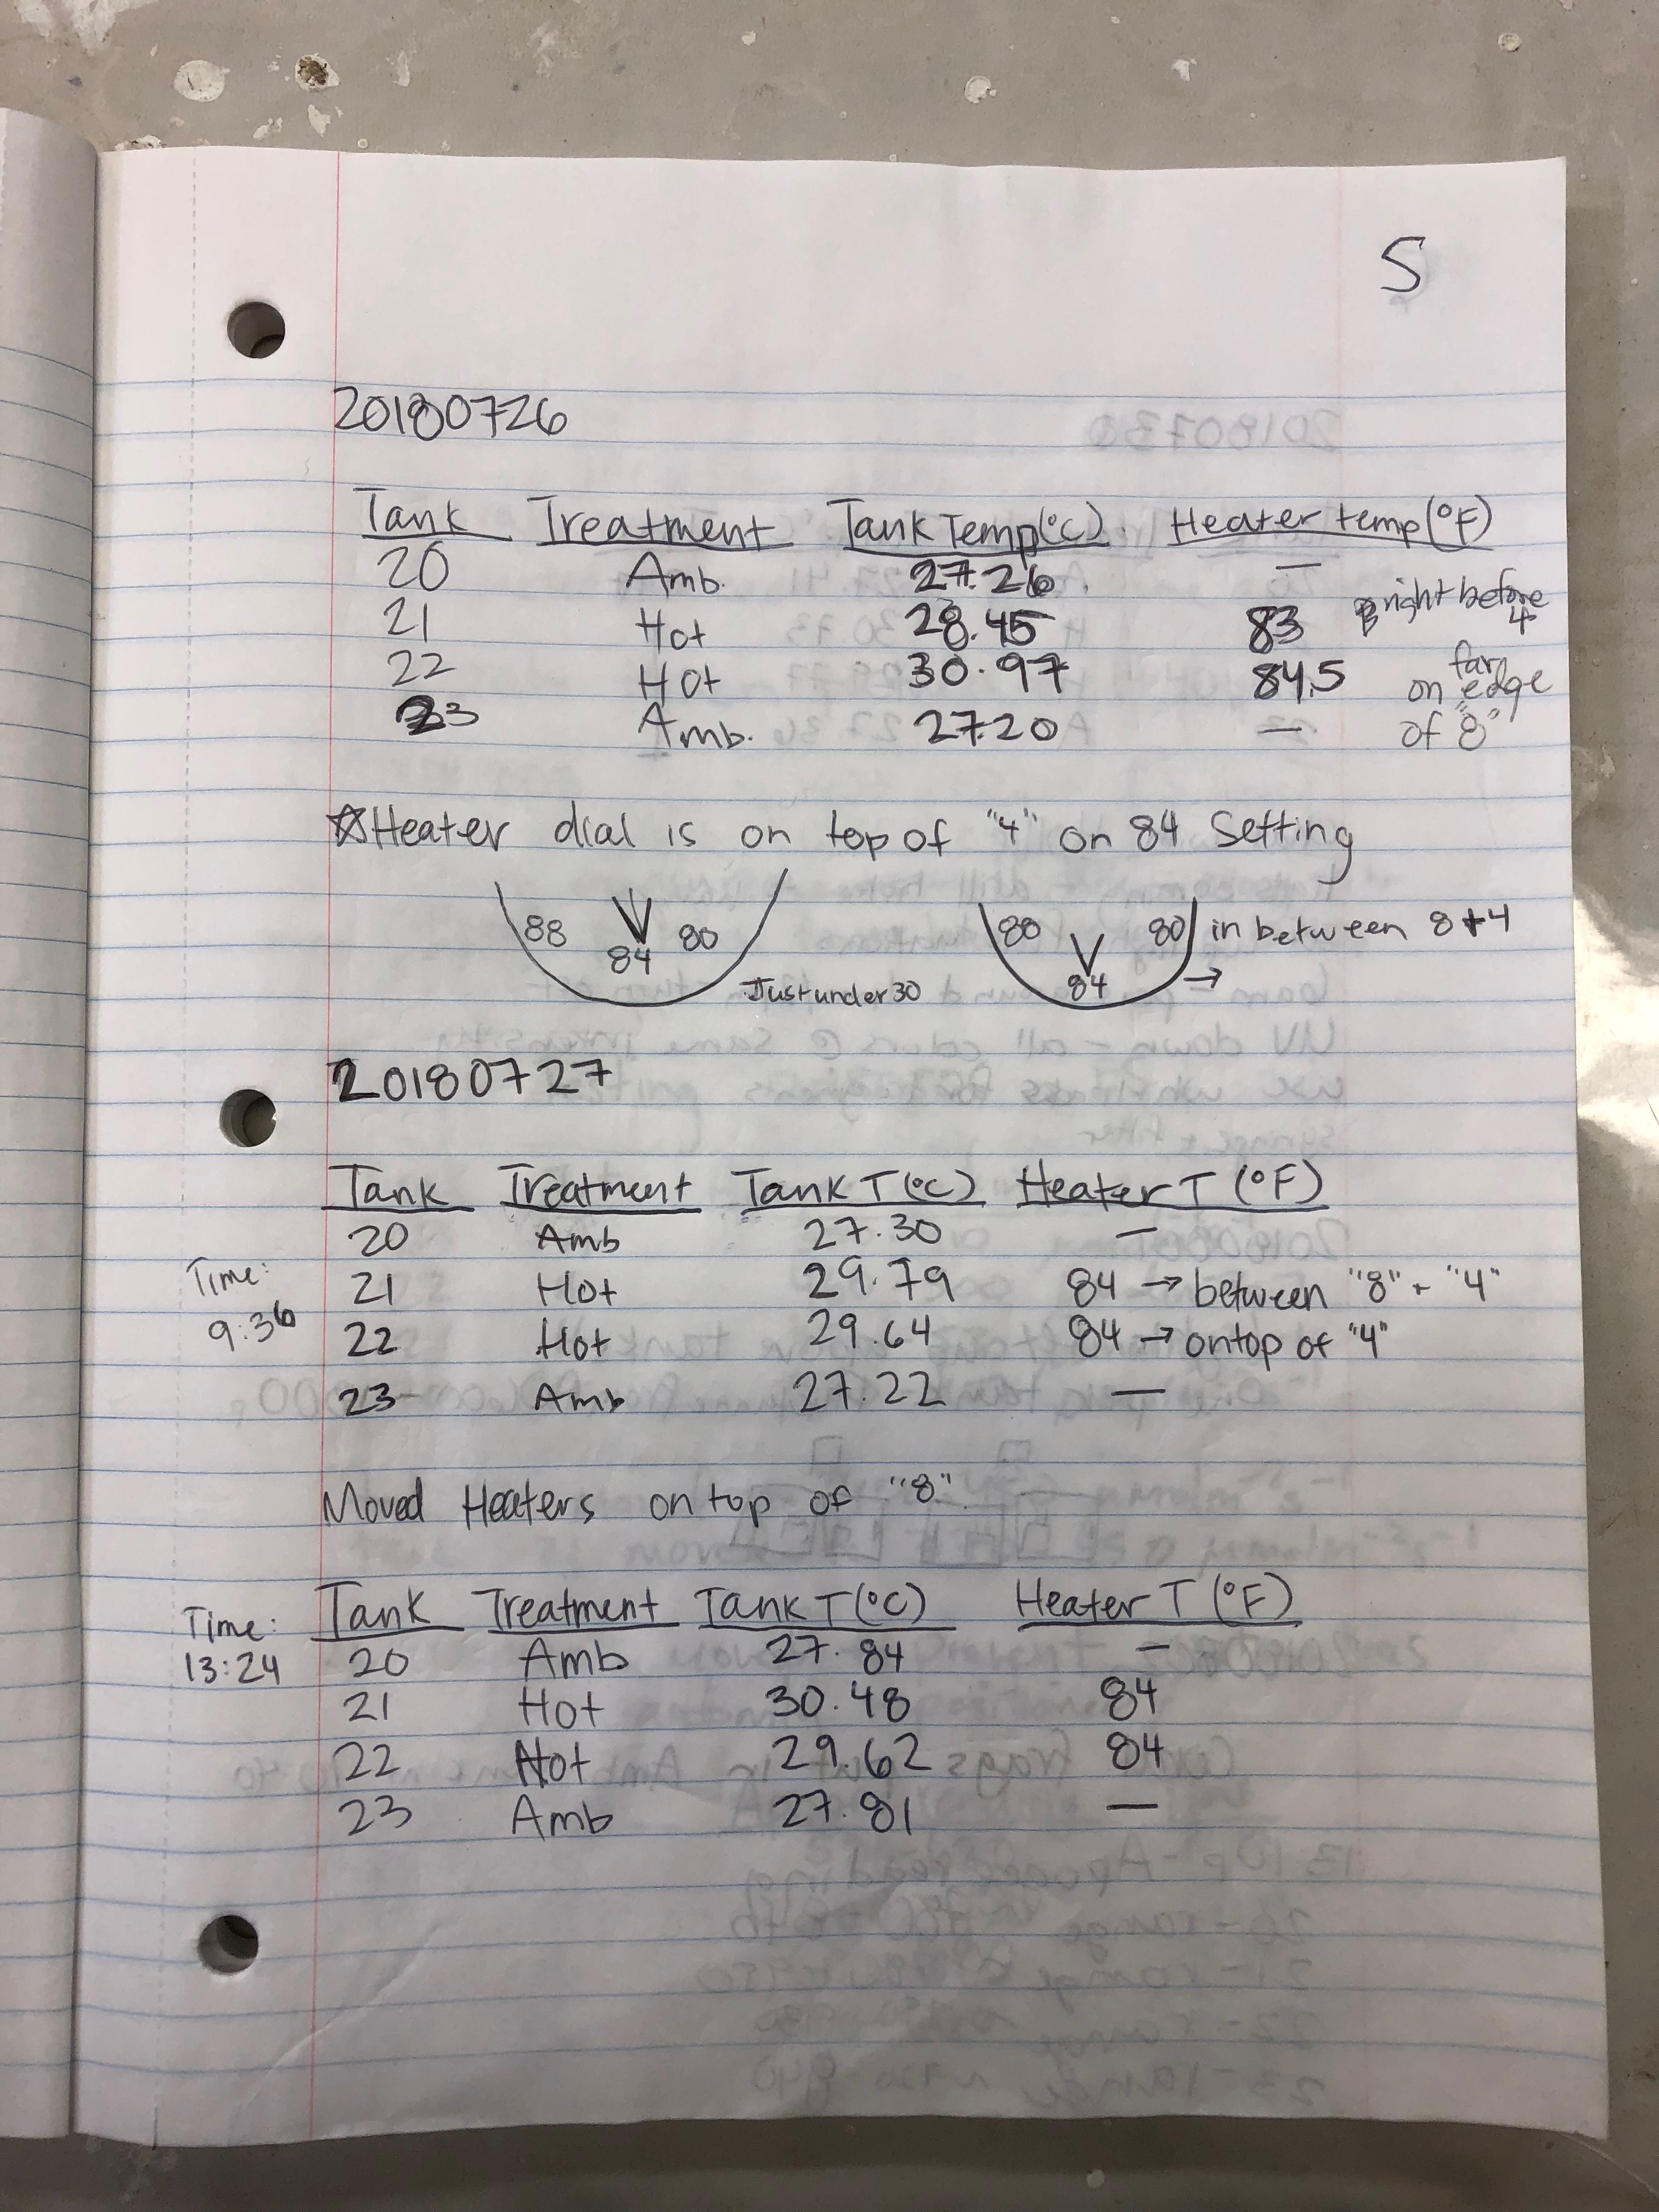 5
20180726
Tank Treatment Tank Temp(°C) Heater temp(°F)
20 Amb. 27.26 —
21 Hot 28.45 83 right before 4
22 Hot 30.97 84.5 on far edge
23 Amb. 27.20 — of "8"
☆Heater dial is on top of "4" on 84 Setting
88 84 80 Just under 30
88 84 80 in between 8+4 →
20180727
Tank Treatment Tank T(°C) Heater T (°F)
20 Amb 27.30 —
Time: 21 Hot 29.79 84 → between "8" + "4"
9:36 22 Hot 29.64 84 → ontop of "4"
23 Amb 27.22 —
Moved Heaters on top of "8".
Time: Tank Treatment Tank T(°C) Heater T (°F)
13:24 20 Amb 27.84 —
21 Hot 30.48 84
22 Hot 29.62 84
23 Amb 27.81 —